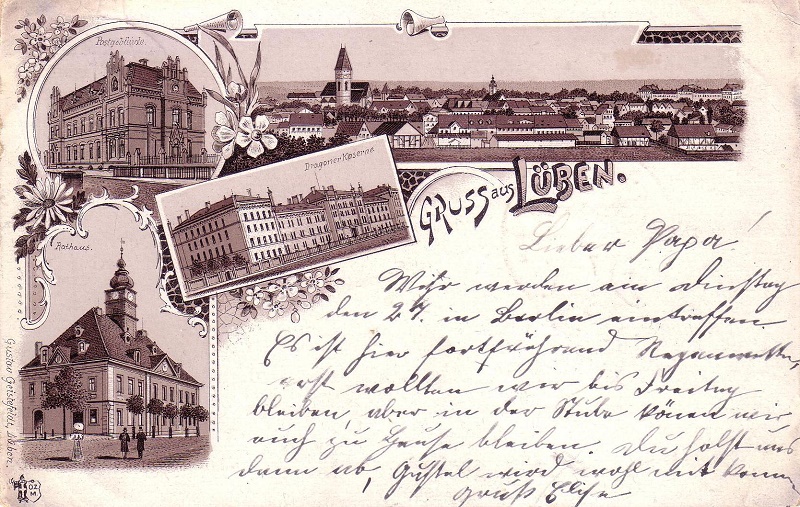 Postgebäude.
Dragoner Kaserne
GRUSS aus LÜBEN.
Rathaus.
Lieber Papa!
Wihr werden am Dinstag
den 27. in Berlin eintreffen.
Es ist hier fortfwährend Reganwetter,
erst wollten wir bis Freitag
bleiben, aber in der Stube könen wir
auch zu Hause bleiben. Du holst uns
dann ab, Gustel wird wohl mit komm
Gruß Elise
Gustav Geissfeldt, Lüben.